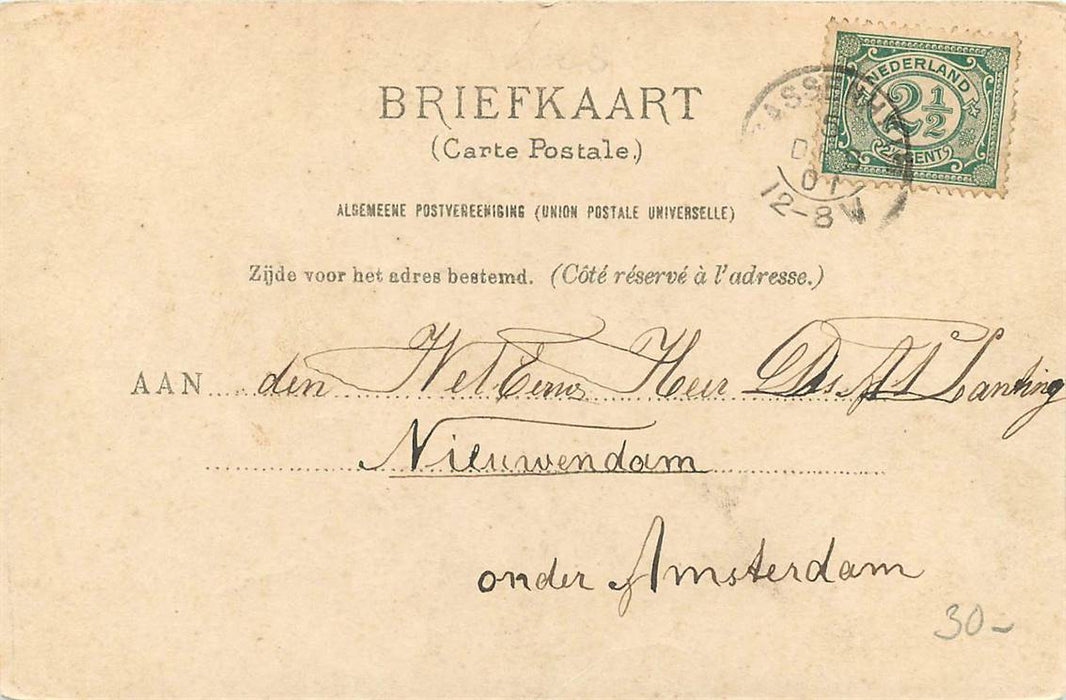 BRIEFKAART
(Carte Postale.)
NEDERLAND
2½
CENT
01
12-8V
ALGEMEENE POSTVEREENIGING (UNION POSTALE UNIVERSELLE)
Zijde voor het adres bestemd. (Côté réservé à l'adresse.)
AAN den Wel Eerw Heer Ds Lanting
Nieuwendam
onder Amsterdam
30-